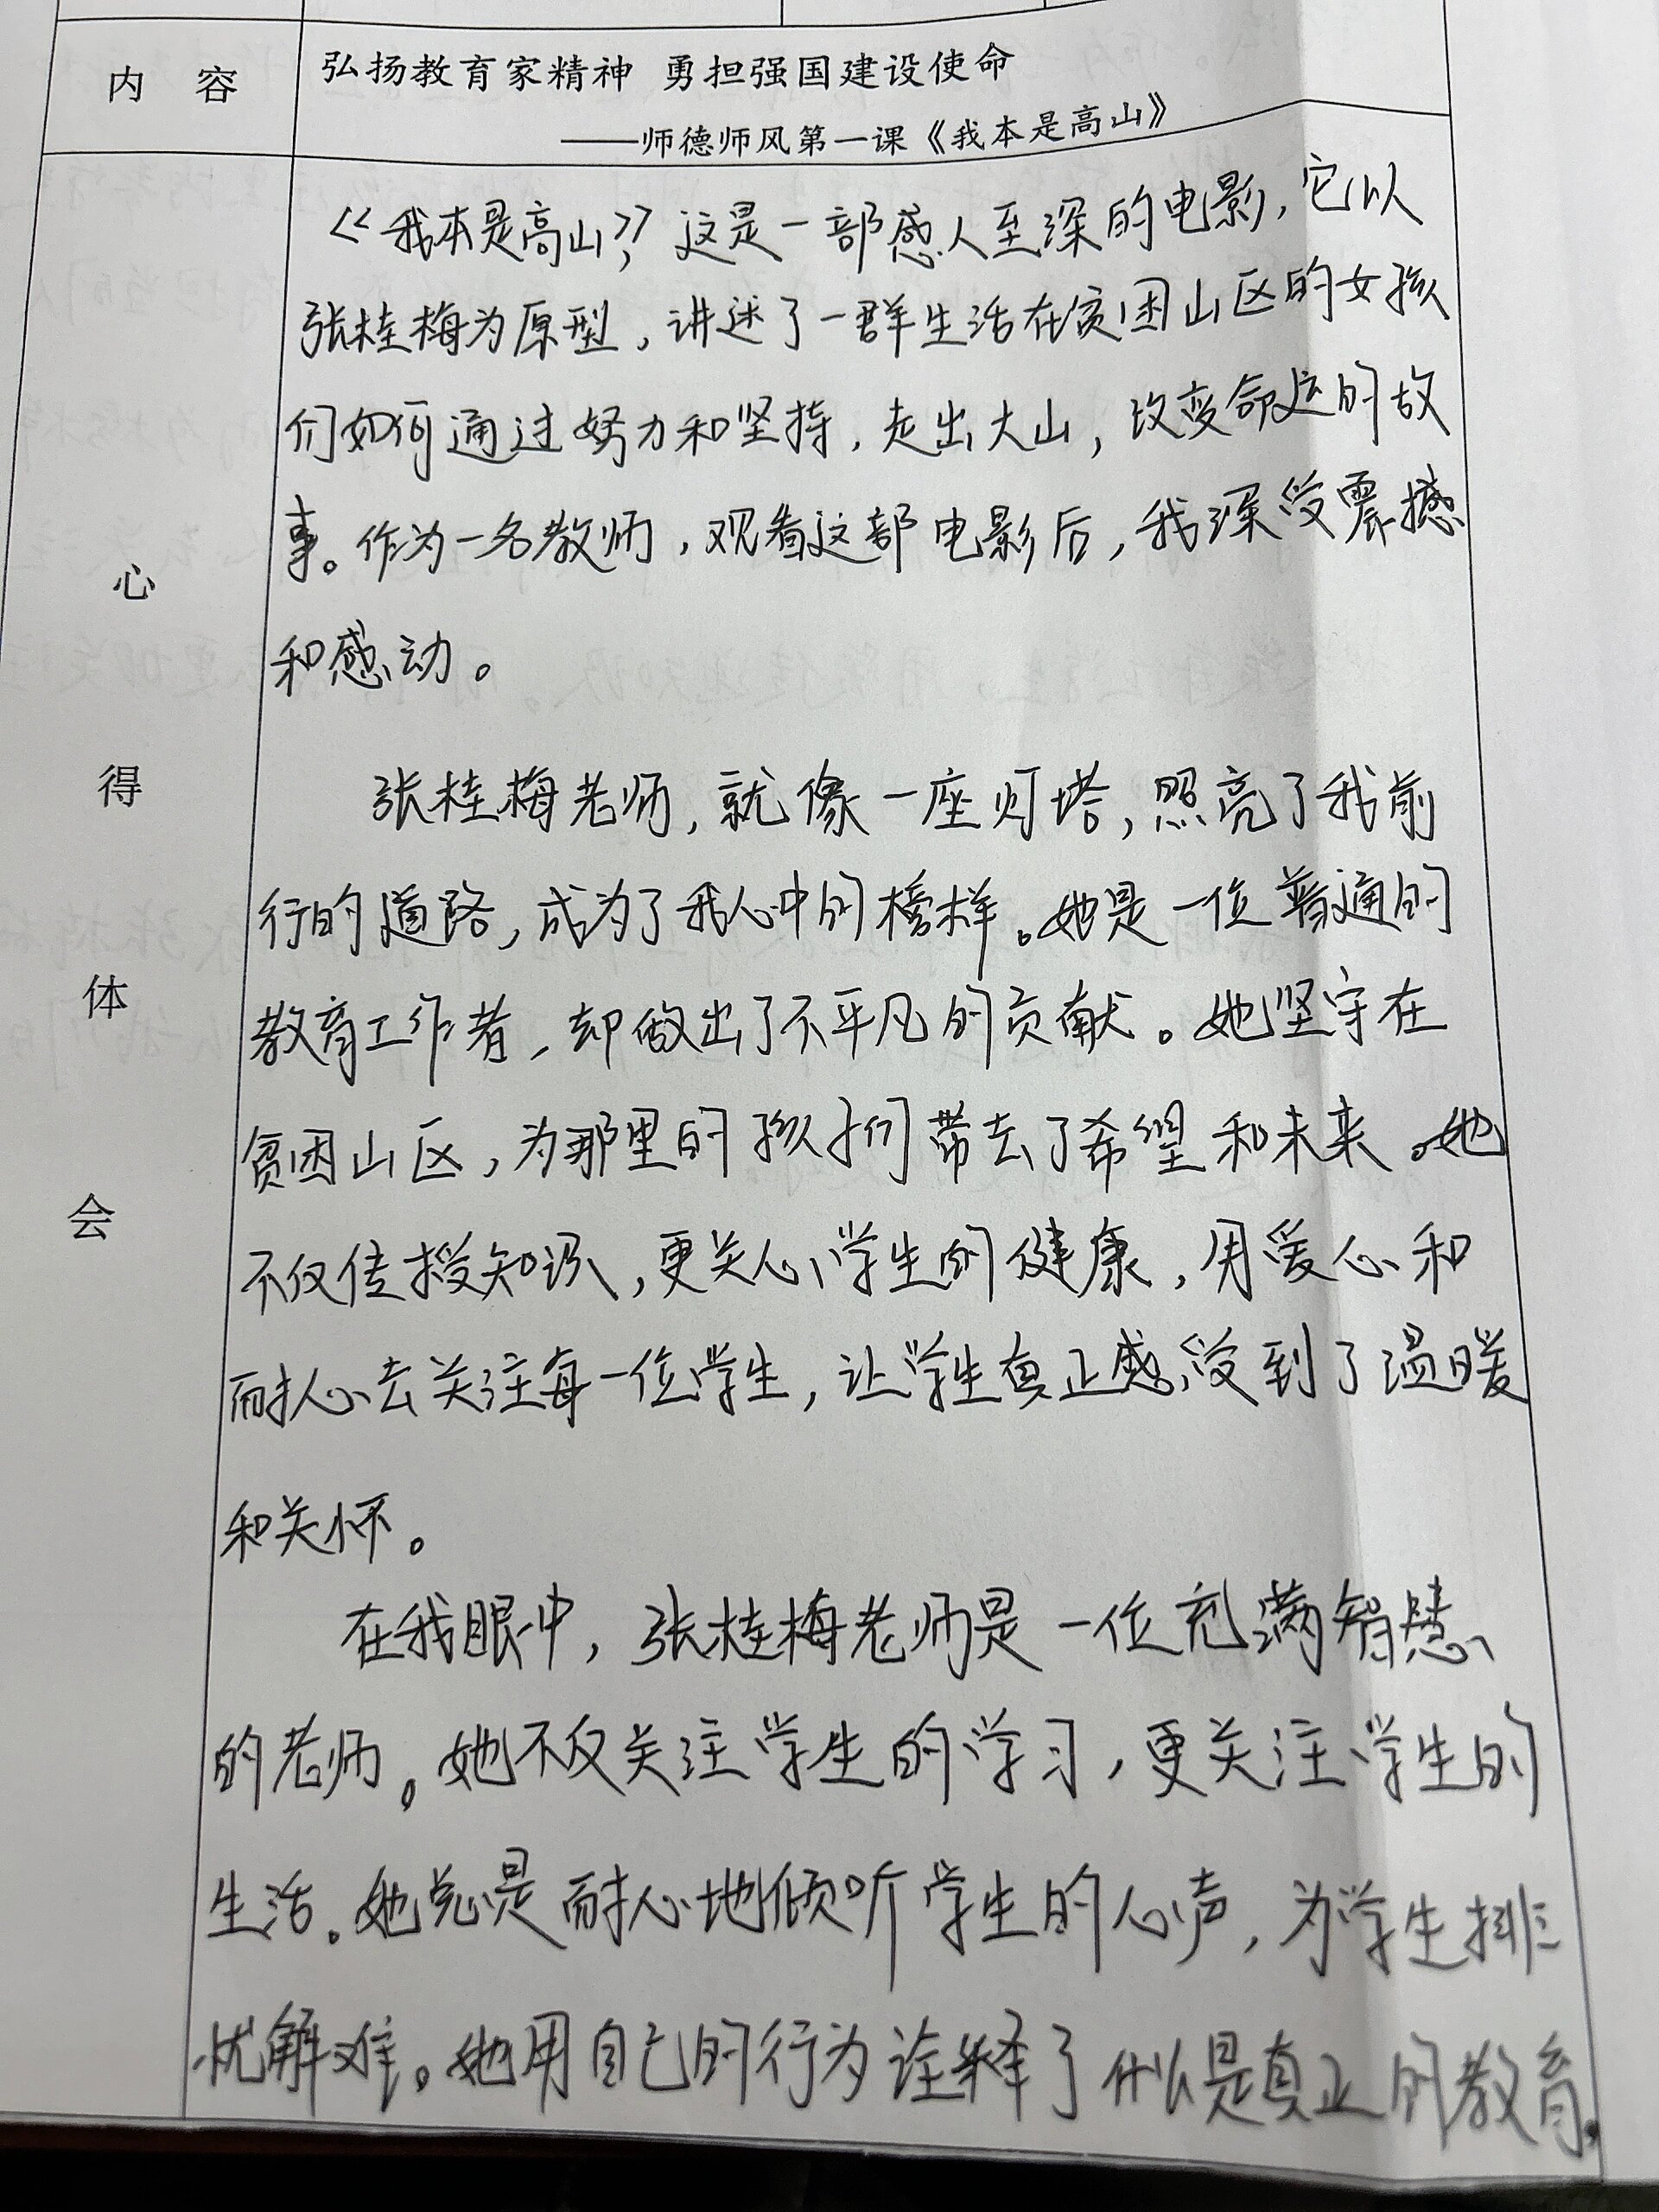 内 容
弘扬教育家精神 勇担强国建设使命
——师德师风第一课《我本是高山》
心
得
体
会
《我本是高山》,这是一部感人至深的电影,它以
张桂梅为原型,讲述了一群生活在贫困山区的女孩
们如何通过努力和坚持,走出大山,改变命运的故
事。作为一名教师,观看这部电影后,我深受震撼
和感动。
张桂梅老师,就像一座灯塔,照亮了我前
行的道路,成为了我心中的榜样。她是一位普通的
教育工作者,却做出了不平凡的贡献。她坚守在
贫困山区,为那里的孩子们带去了希望和未来。她
不仅传授知识,更关心学生的健康,用爱心和
耐心去关注每一位学生,让学生真正感受到了温暖
和关怀。
在我眼中,张桂梅老师是一位充满智慧、
的老师。她不仅关注学生的学习,更关注学生的
生活。她总是耐心地倾听学生的心声,为学生排
忧解难。她用自己的行为诠释了什么是真正的教育,